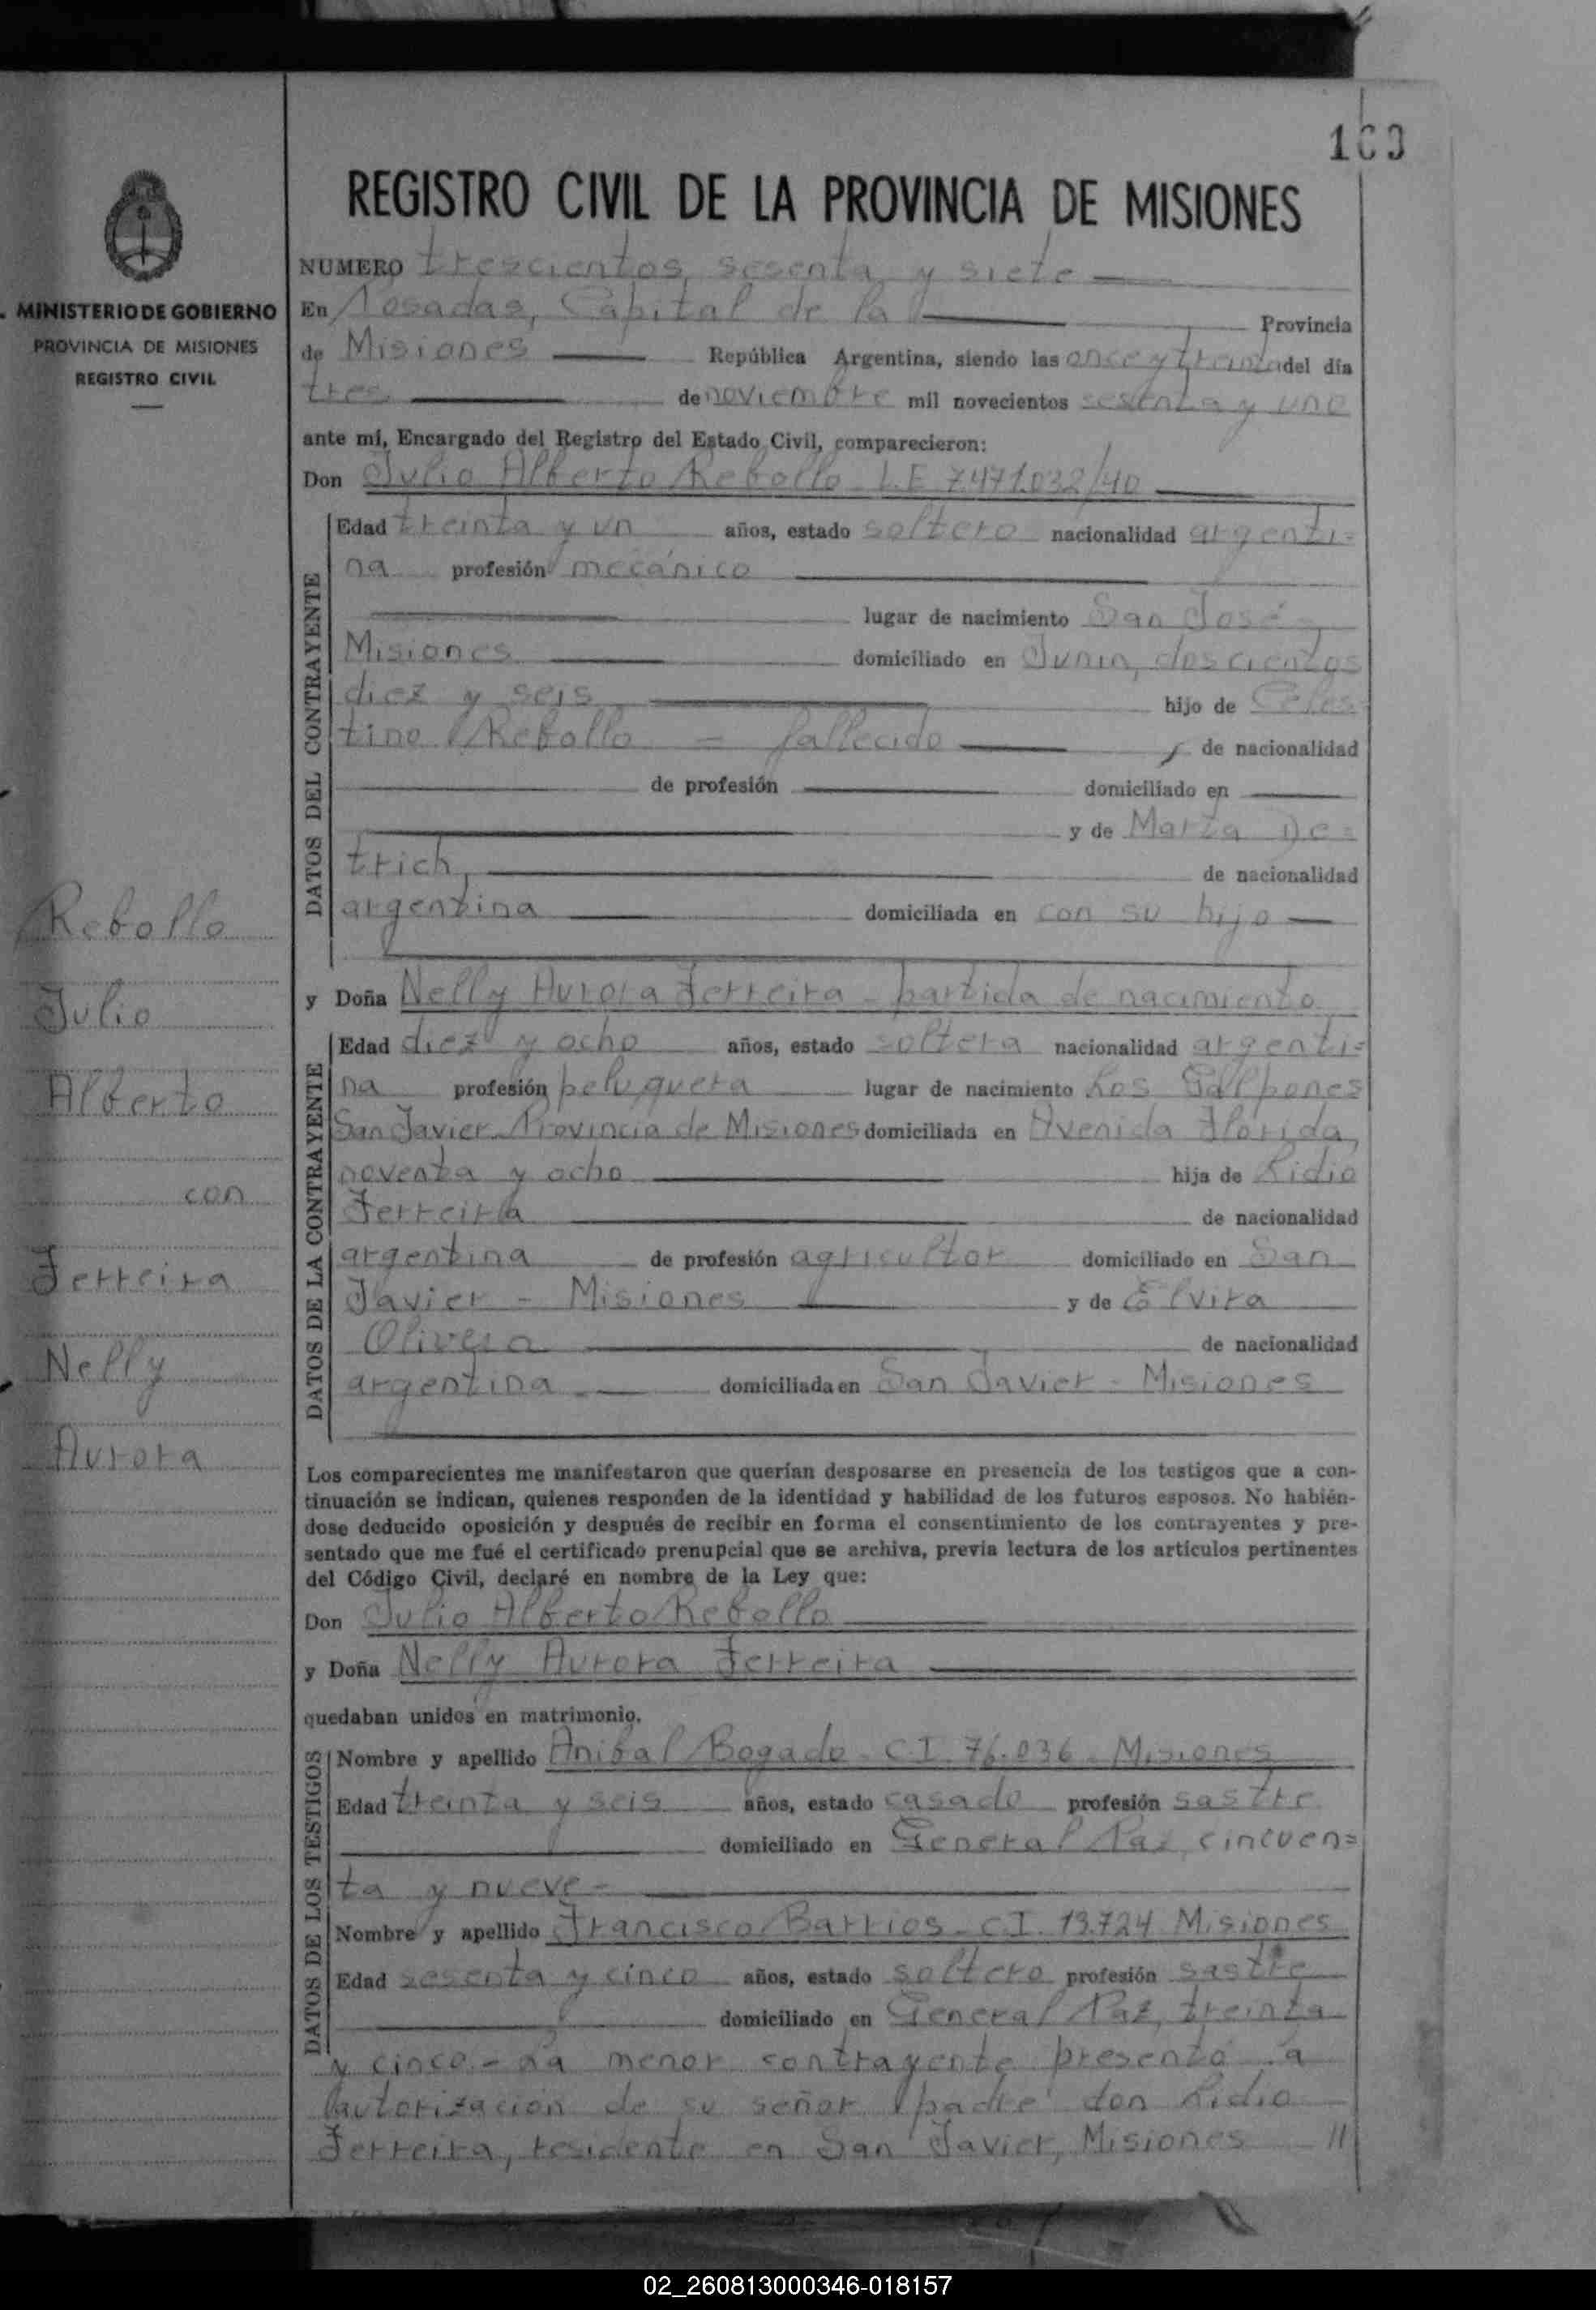 REGISTRO CIVIL DE LA PROVINCIA DE MISIONES
MINISTERIO DE GOBIERNO
PROVINCIA DE MISIONES
REGISTRO CIVIL
Rebollo
Julio
Alberto
con
Ferreira
Nelly
Aurora
NUMERO trescientos sesenta y siete
En Posadas, Capital de la Provincia
de Misiones República Argentina, siendo las once y treinta del día
tres de noviembre mil novecientos sesenta y uno
ante mí, Encargado del Registro del Estado Civil, comparecieron:
Don Julio Alberto Rebollo - L.E 7.471.032/40
DATOS DEL CONTRAYENTE
Edad treinta y un años, estado soltero nacionalidad argenti=
na profesión mecánico
lugar de nacimiento San José -
Misiones domiciliado en Junin, doscientos
diez y seis hijo de Celes=
tino Rebollo - fallecido de nacionalidad
de profesión domiciliado en
y de Marta De=
trich, de nacionalidad
argentina domiciliada en con su hijo
y Doña Nelly Aurora Ferreira - partida de nacimiento
DATOS DE LA CONTRAYENTE
Edad diez y ocho años, estado soltera nacionalidad argenti=
na profesión peluquera lugar de nacimiento Los Galpones
San Javier Provincia de Misiones domiciliada en Avenida Florida,
noventa y ocho hija de Lidio
Ferreira de nacionalidad
argentina de profesión agricultor domiciliado en San
Javier - Misiones y de Elvira
Olivera de nacionalidad
argentina domiciliada en San Javier - Misiones
Los comparecientes me manifestaron que querían desposarse en presencia de los testigos que a con-
tinuación se indican, quienes responden de la identidad y habilidad de los futuros esposos. No habién-
dose deducido oposición y después de recibir en forma el consentimiento de los contrayentes y pre-
sentado que me fué el certificado prenupcial que se archiva, previa lectura de los artículos pertinentes
del Código Civil, declaré en nombre de la Ley que:
Don Julio Alberto Rebollo
y Doña Nelly Aurora Ferreira
quedaban unidos en matrimonio.
DATOS DE LOS TESTIGOS
Nombre y apellido Anibal Bogado - C.I. 76.036 - Misiones
Edad treinta y seis años, estado casado profesión sastre
domiciliado en General Paz, cincuen=
ta y nueve -
Nombre y apellido Francisco Barrios - C.I. 13.724 Misiones
Edad sesenta y cinco años, estado soltero profesión sastre
domiciliado en General Paz, treinta
y cinco - La menor contrayente presentó la
autorización de su señor padre don Lidio
Ferreira, residente en San Javier, Misiones //
02_260813000346-018157